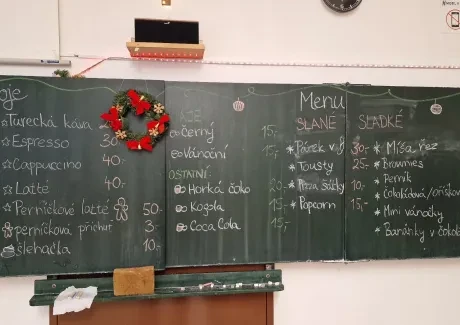 oje
Turecká káva
Espresso 30,-
Cappuccino 40,-
Latté 40,-
Perníčkové latté 50,-
perníčková příchuť 3,-
šlehačka 10,-
černý 15,-
Vánoční 15,-
OSTATNÍ:
Horká čoko 20,-
Kofola 15,-
Coca Cola 15,-
Menu
SLANÉ
Párek v 30,-
Tousty 25,-
Pizza šátky 10,-
Popcorn 15,-
SLADKÉ
Míša řez
Brownies
Perník
čokoládová/oříšková
Mini vánočky
Banánky v čokol